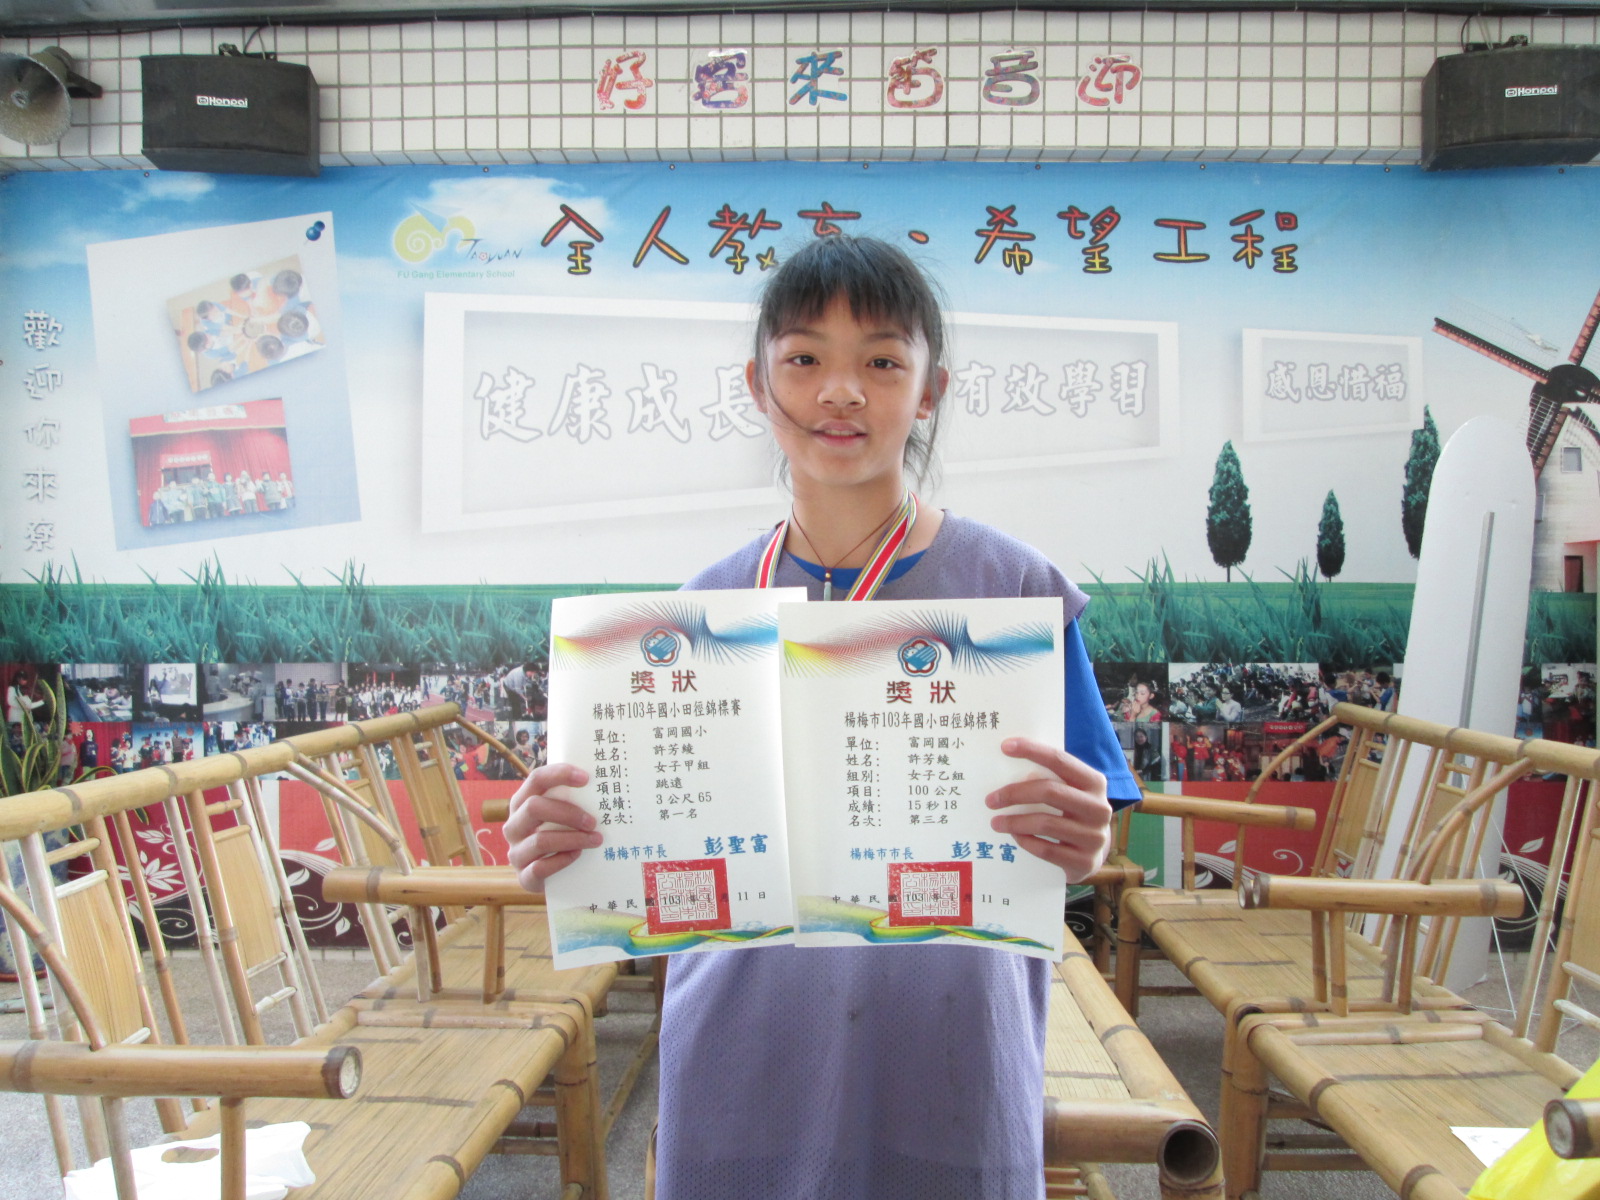 Honpai
好客來富音迎
Honpai
全人教育、希望工程
TAOYUAN
FU Gang Elementary School
歡迎你來寮
健康成長
有效學習
感恩惜福
獎狀
楊梅市103年國小田徑錦標賽
單位： 富岡國小
姓名： 許芳綾
組別： 女子甲組
項目： 跳遠
成績： 3公尺65
名次： 第一名
楊梅市市長 彭聖富
中華民國103年 月11日
獎狀
楊梅市103年國小田徑錦標賽
單位： 富岡國小
姓名： 許芳綾
組別： 女子乙組
項目： 100公尺
成績： 15秒18
名次： 第三名
楊梅市市長 彭聖富
中華民國103年 月11日